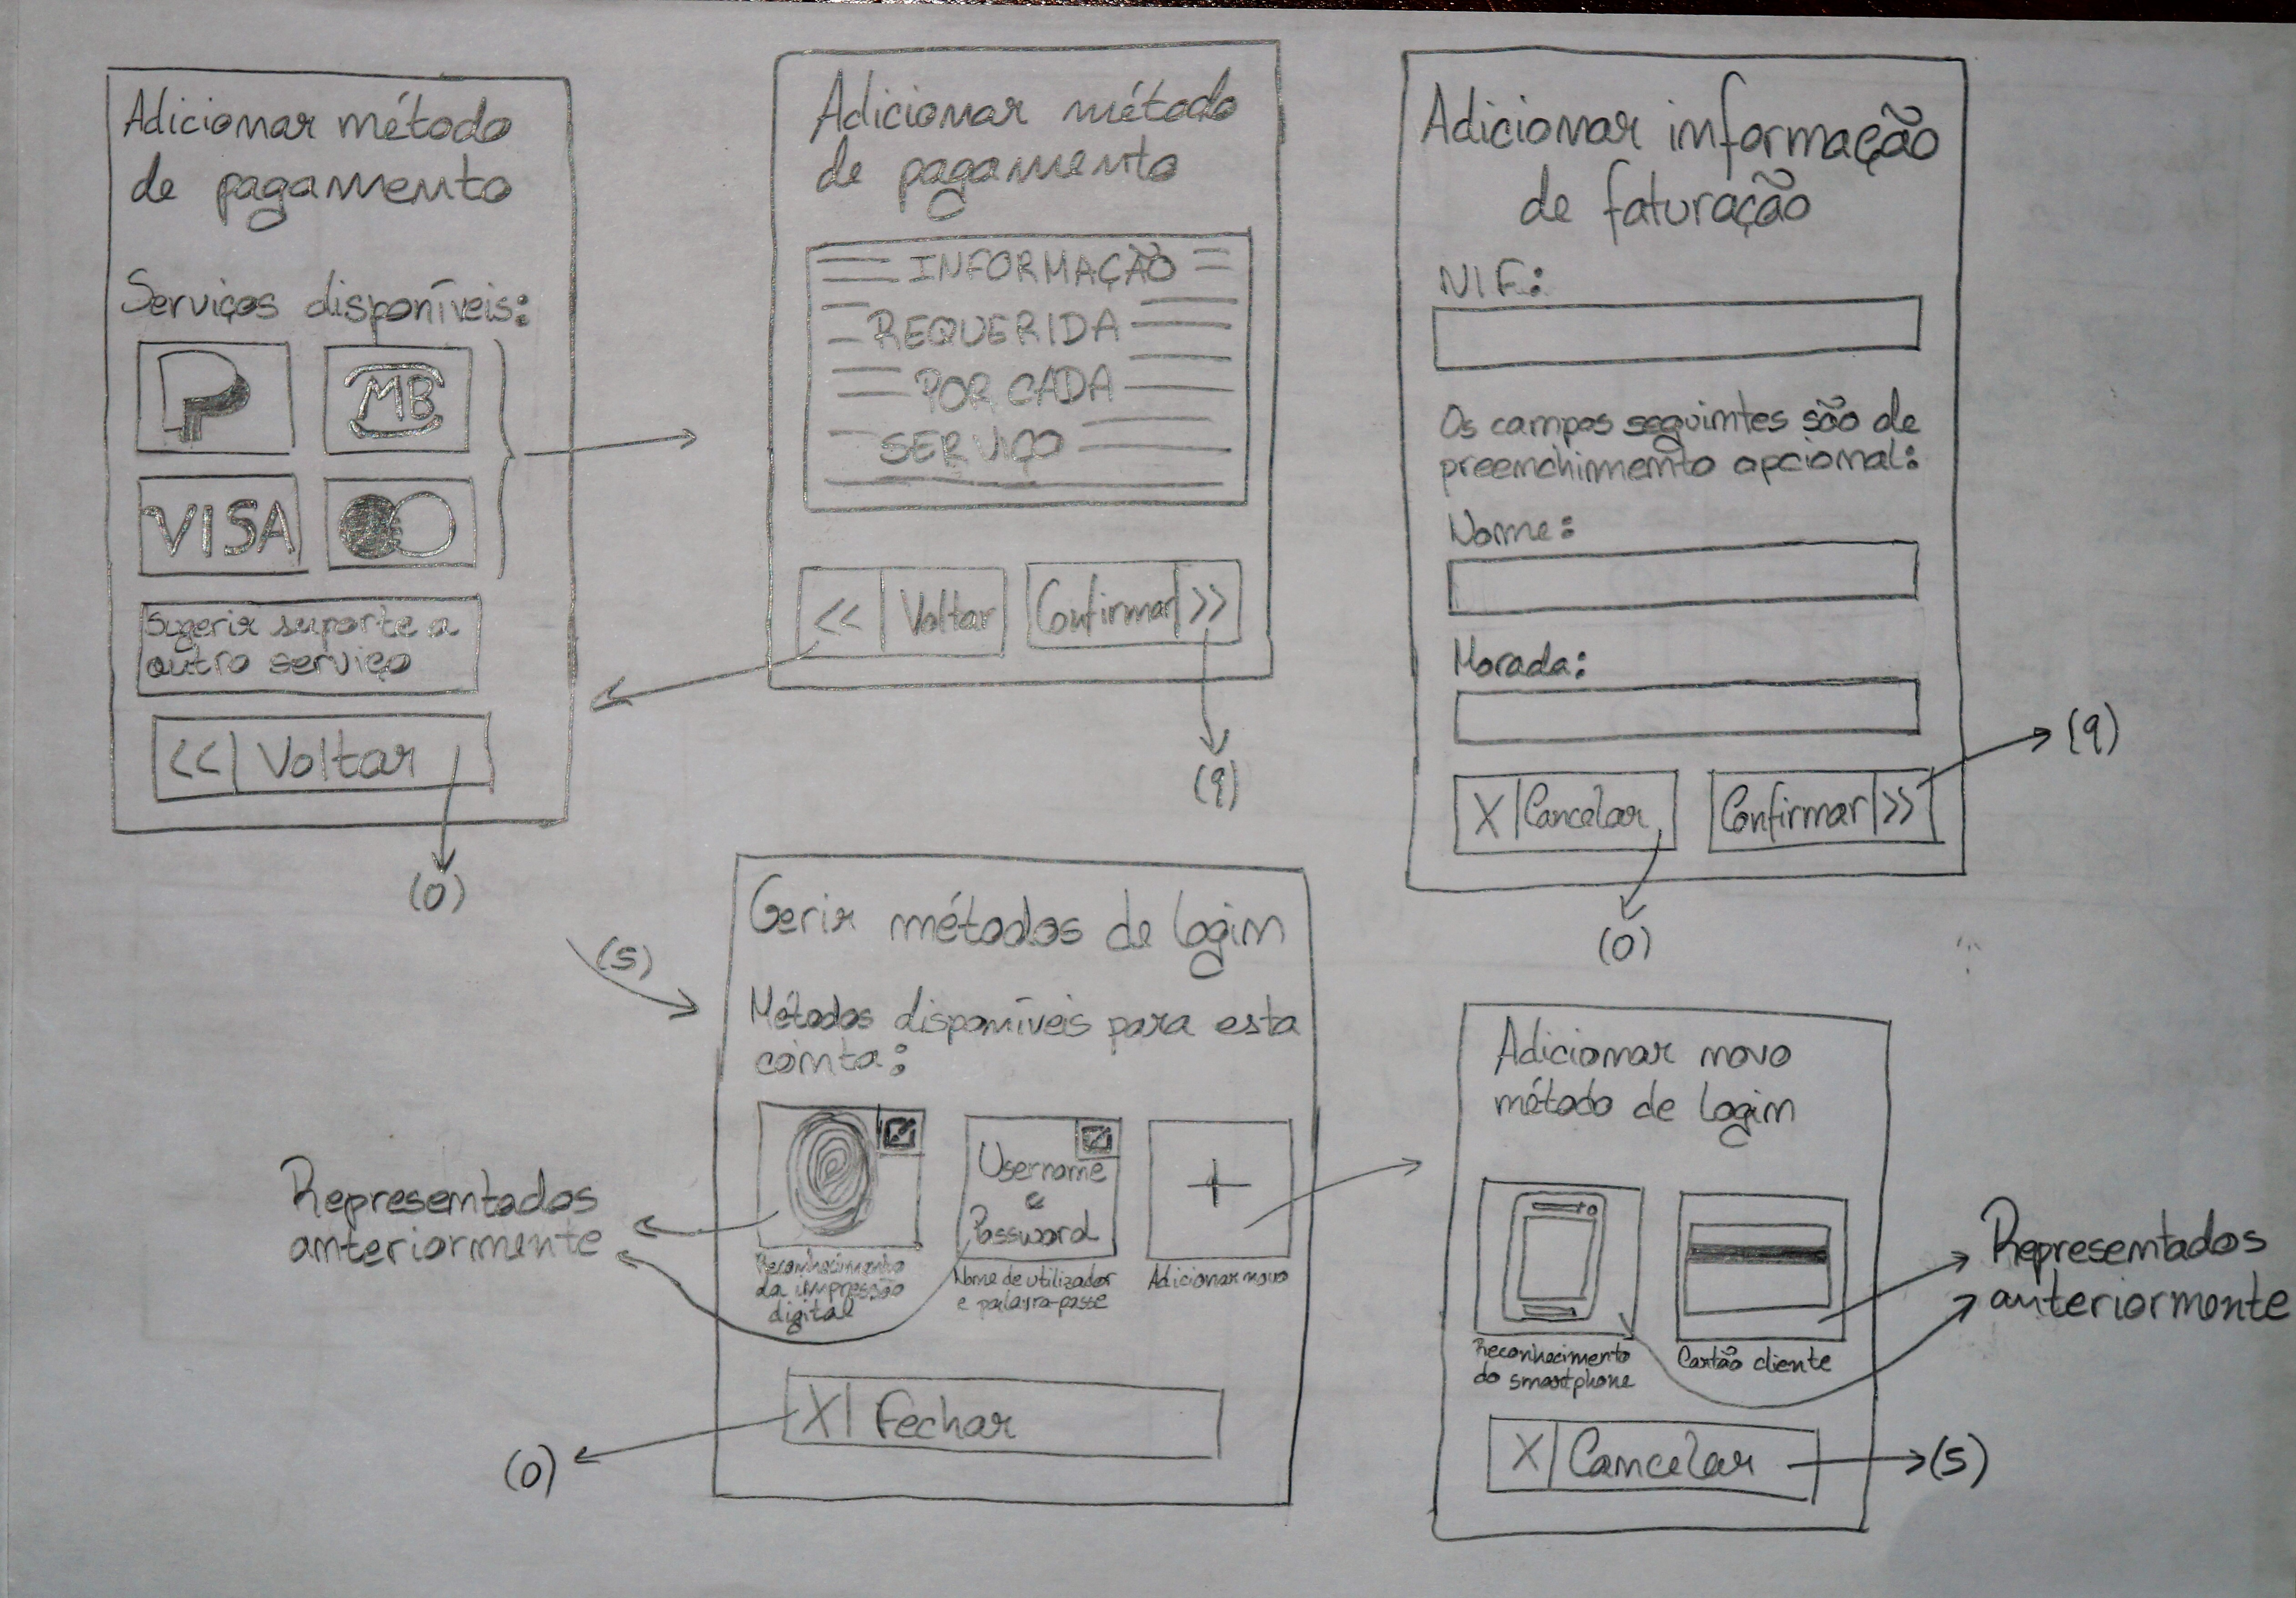 Adicionar método
de pagamento
Serviços disponíveis:
P
MB
VISA
Sugerir suporte a
outro serviço
<< Voltar
(0)
Adicionar método
de pagamento
INFORMAÇÃO
REQUERIDA
POR CADA
SERVIÇO
<< Voltar
Confirmar >>
(9)
Adicionar informação
de faturação
NIF:
Os campos seguintes são de
preenchimento opcional:
Nome:
Morada:
X Cancelar
Confirmar >>
(9)
(0)
(5)
Gerir métodos de login
Métodos disponíveis para esta
conta:
Username
e
Password
+
Reconhecimento
da impressão
digital
Nome de utilizador
e palavra-passe
Adicionar novo
Representados
anteriormente
X Fechar
(0)
Adicionar novo
método de login
Reconhecimento
do smartphone
Cartão cliente
Representados
anteriormente
X Cancelar
(5)